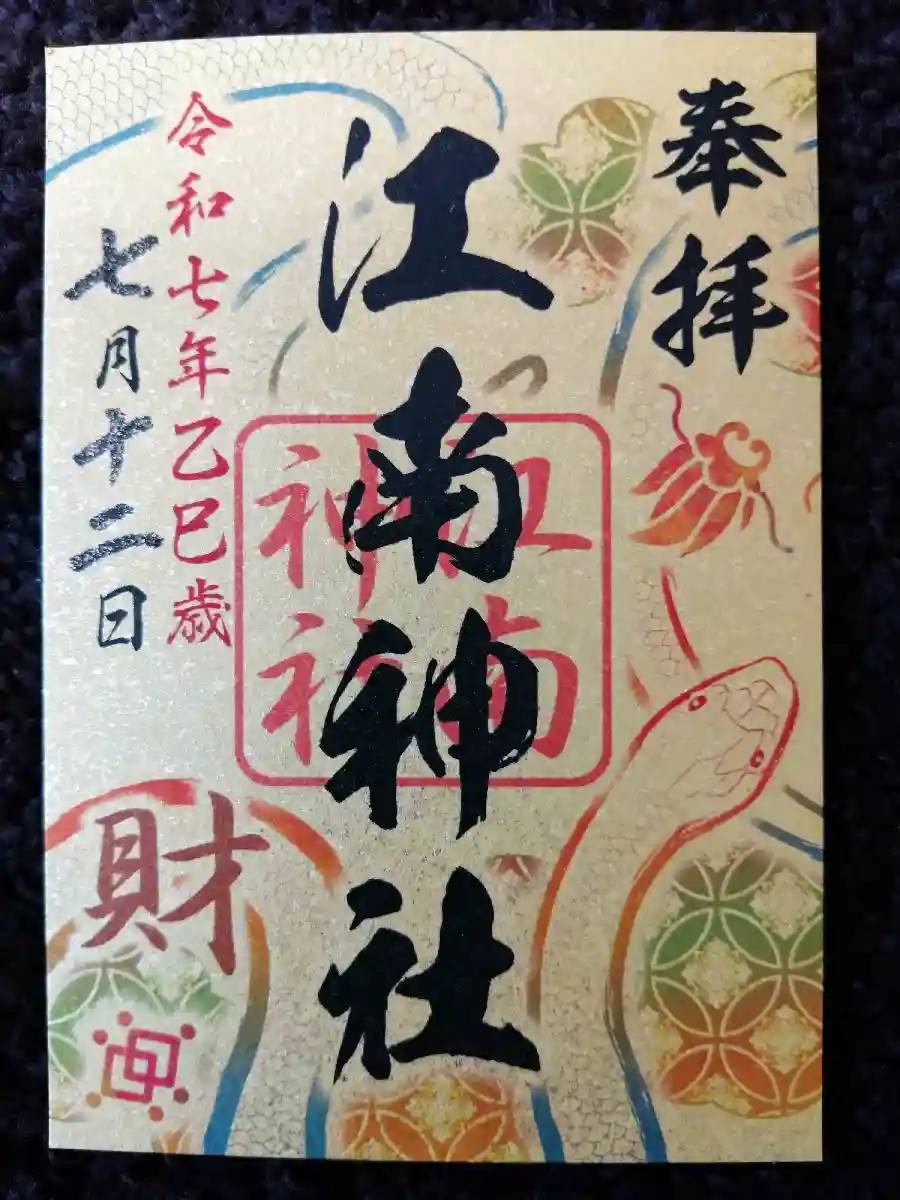 奉拝
江南神社
江南
神社
令和七年乙巳歳
七月十二日
財